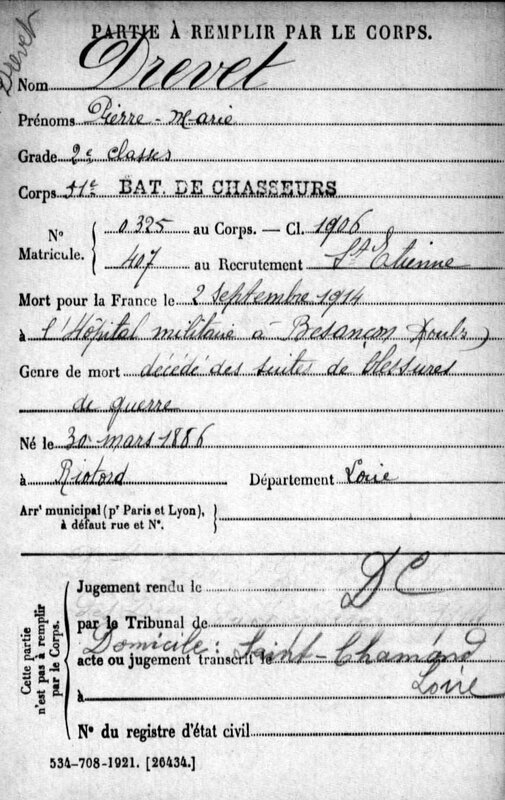 Drevet
PARTIE À REMPLIR PAR LE CORPS.
Nom Drevet
Prénoms Pierre-Marie
Grade 2e classe
Corps 11e BAT. DE CHASSEURS
N° Matricule. { 0.325 au Corps. — Cl. 1906
407 au Recrutement St Etienne
Mort pour la France le 2 septembre 1914
à l'Hôpital militaire à Besançon Doubs
Genre de mort décédé des suites de blessures
de guerre
Né le 30 mars 1886
à Riotord Département Loire
Arrt municipal (pr Paris et Lyon), à défaut rue et N°. }
Cette partie n'est pas à remplir par le Corps. {
Jugement rendu le DC
par le Tribunal de
Domicile : Saint-Chamond
acte ou jugement transcrit le
Loire
à
N° du registre d'état civil
534-708-1921. [26434.]